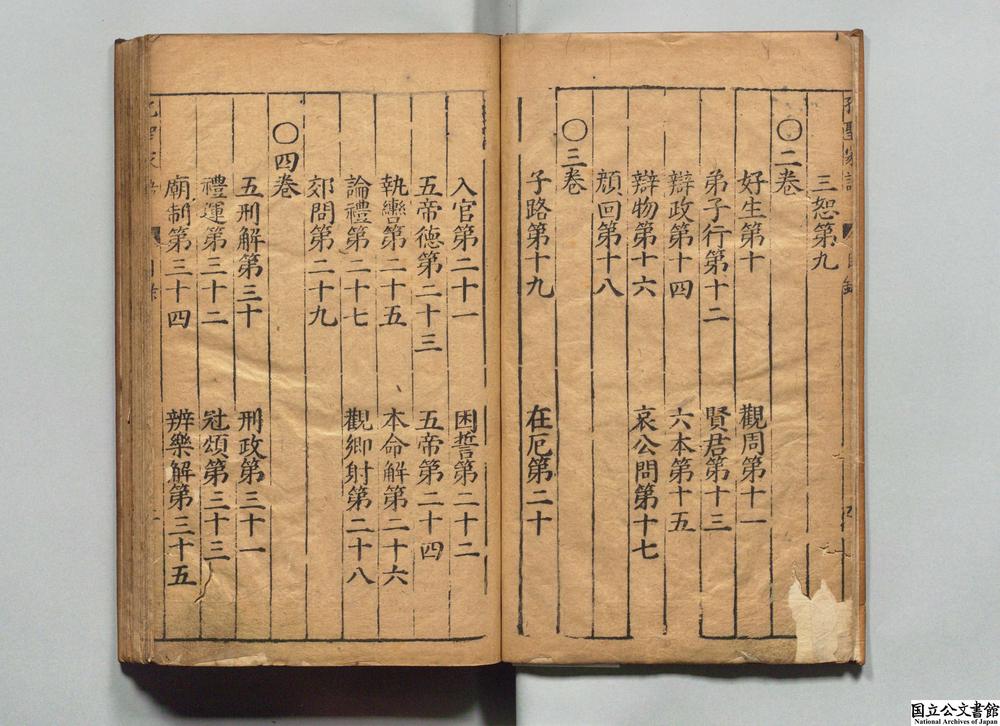 三恕第九
〇二卷
好生第十 觀周第十一
弟子行第十二 賢君第十三
辯政第十四 六本第十五
辯物第十六 哀公問第十七
顔回第十八
〇三卷
子路第十九 在厄第二十
入官第二十一 困誓第二十二
五帝德第二十三 五帝第二十四
執轡第二十五 本命解第二十六
論禮第二十七 觀鄉射第二十八
郊問第二十九
〇四卷
五刑解第三十 刑政第三十一
禮運第三十二 冠頌第三十三
廟制第三十四 辨樂解第三十五
国立公文書館
National Archives of Japan